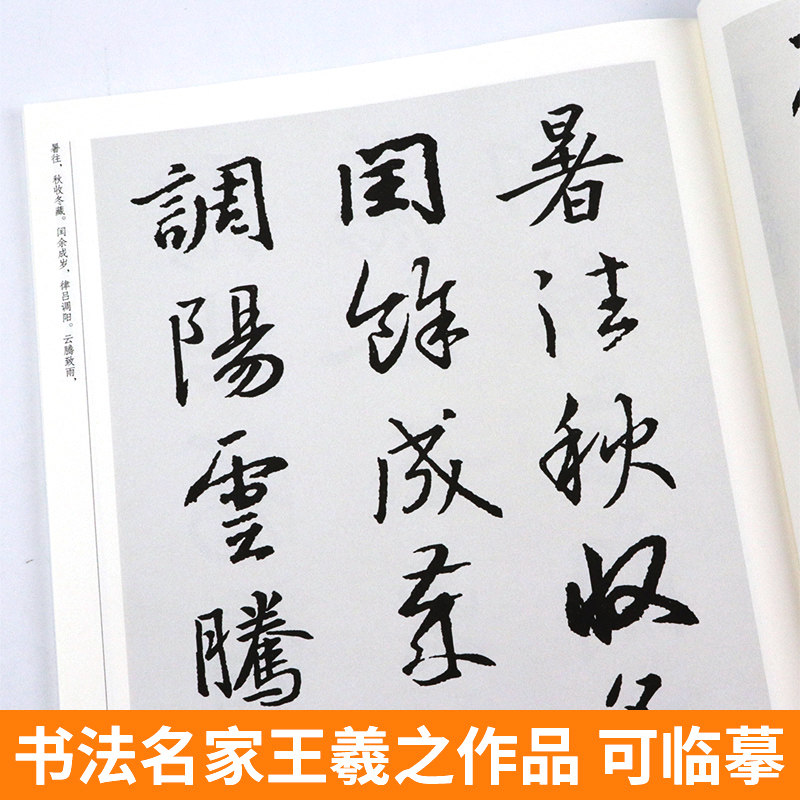 暑往秋收
闰餘成岁
調陽雲騰
暑往，秋收冬藏。闰余成岁，律吕调阳。云腾致雨，
书法名家王羲之作品 可临摹